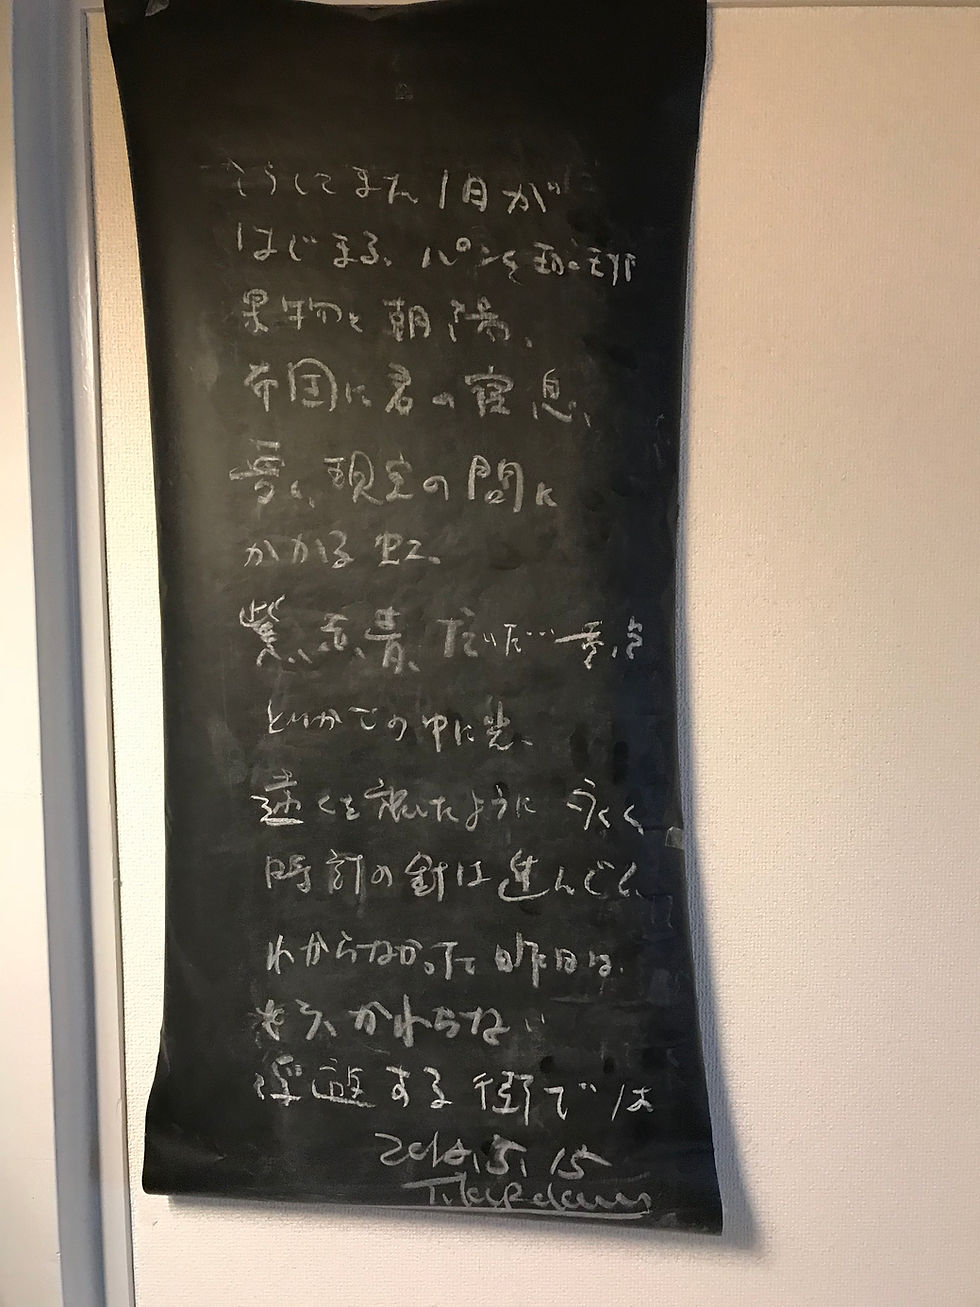 こうしてまた1日が
はじまる、パンと珈琲
果物と朝陽、
布団に君の寝息、
夢と、現実の間に
かかる虹、
紫、赤、青、だいだい…
の中に光、
ように
時計の針は進んでく、
わからなかった昨日は、
もう、かわらない
浮遊する街では
5.15